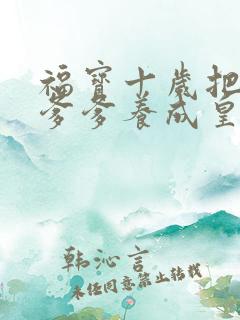 福宝十岁把
爹爹养成皇
韩沁言
未经同意禁止转载